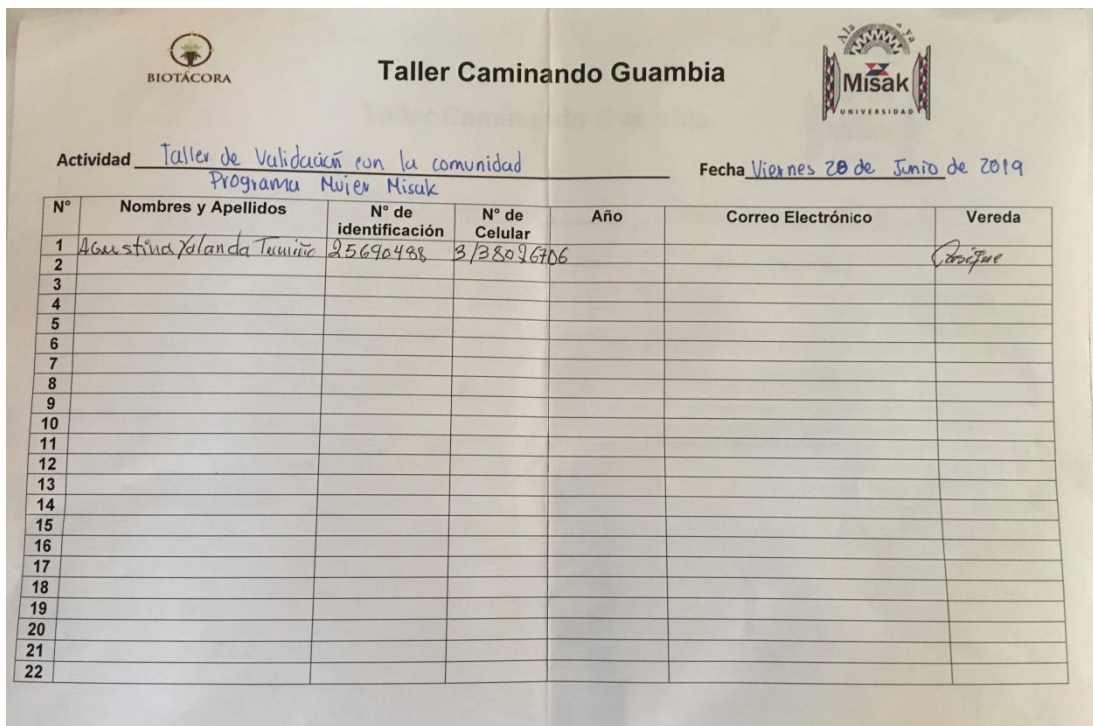 BIOTÁCORA
Taller Caminando Guambia
Misak
UNIVERSIDAD
Actividad Taller de Validación con la comunidad
Programa Mujer Misak
Fecha Viernes 28 de Junio de 2019
N° Nombres y Apellidos N° de identificación N° de Celular Año Correo Electrónico Vereda
1 Agustina Yolanda 25690488 3138026706
2
3
4
5
6
7
8
9
10
11
12
13
14
15
16
17
18
19
20
21
22